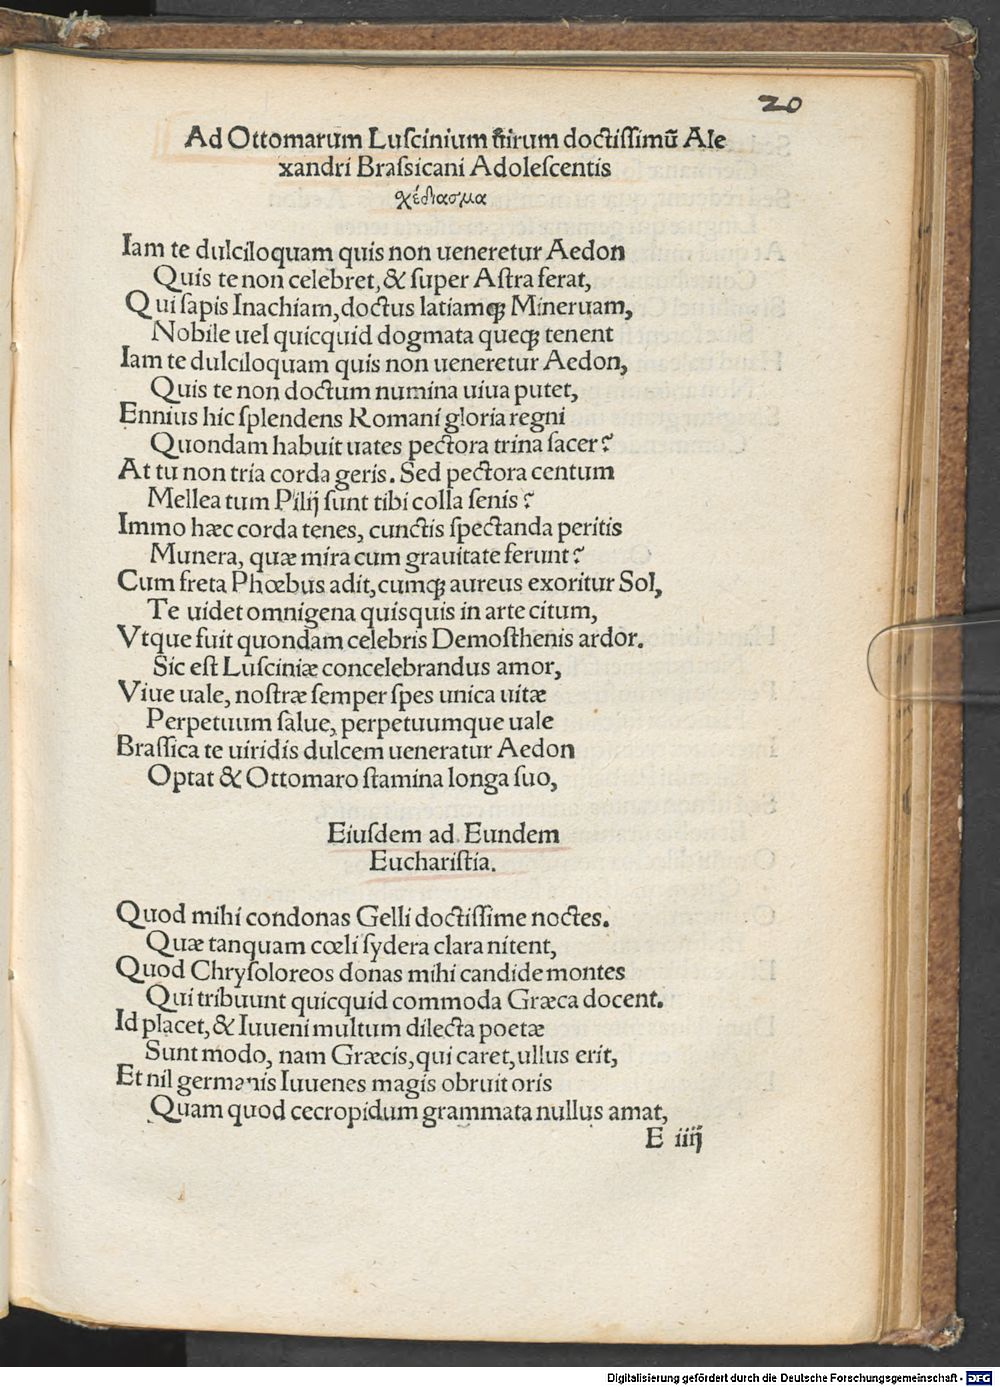 20
Ad Ottomarum Luſcinium virum doctiſſimū Ale
xandri Braſſicani Adoleſcentis
χέδιασμα
Iam te dulciloquam quis non ueneretur Aedon
Quis te non celebret, & ſuper Aſtra ferat,
Qui ſapis Inachiam, doctus latiamqꝫ Mineruam,
Nobile uel quicquid dogmata queqꝫ tenent
Iam te dulciloquam quis non ueneretur Aedon,
Quis te non doctum numina uiua putet,
Ennius hic ſplendens Romani gloria regni
Quondam habuit uates pectora trina ſacer?
At tu non tria corda geris. Sed pectora centum
Mellea tum Pilij ſunt tibi colla ſenis?
Immo hæc corda tenes, cunctis ſpectanda peritis
Munera, quæ mira cum grauitate ferunt?
Cum freta Phœbus adit, cumqꝫ aureus exoritur Sol,
Te uidet omnigena quisquis in arte citum,
Vtque fuit quondam celebris Demoſthenis ardor.
Sic eſt Luſciniæ concelebrandus amor,
Viue uale, noſtræ ſemper ſpes unica uitæ
Perpetuum ſalue, perpetuumque uale
Braſſica te uiridis dulcem ueneratur Aedon
Optat & Ottomaro ſtamina longa ſuo,
Eiuſdem ad Eundem
Euchariſtia.
Quod mihi condonas Gelli doctiſſime noctes.
Quæ tanquam cœli ſydera clara nitent,
Quod Chryſoloreos donas mihi candide montes
Qui tribuunt quicquid commoda Græca docent.
Id placet, & Iuueni multum dilecta poetæ
Sunt modo, nam Græcis, qui caret, ullus erit,
Et nil germanis Iuuenes magis obruit oris
Quam quod cecropidum grammata nullus amat,
E iiij
Digitalisierung gefördert durch die Deutsche Forschungsgemeinschaft - DFG